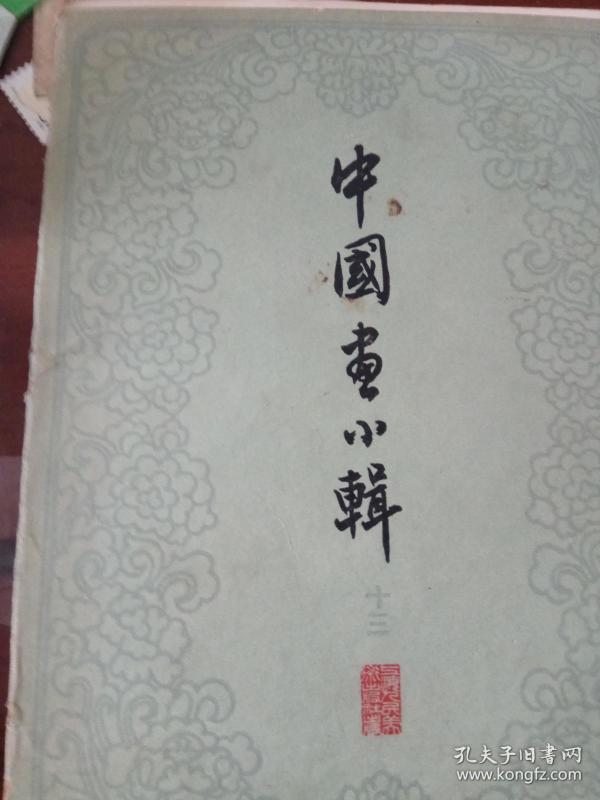 中國畫小輯
十三
孔夫子旧书网
www.kongfz.com